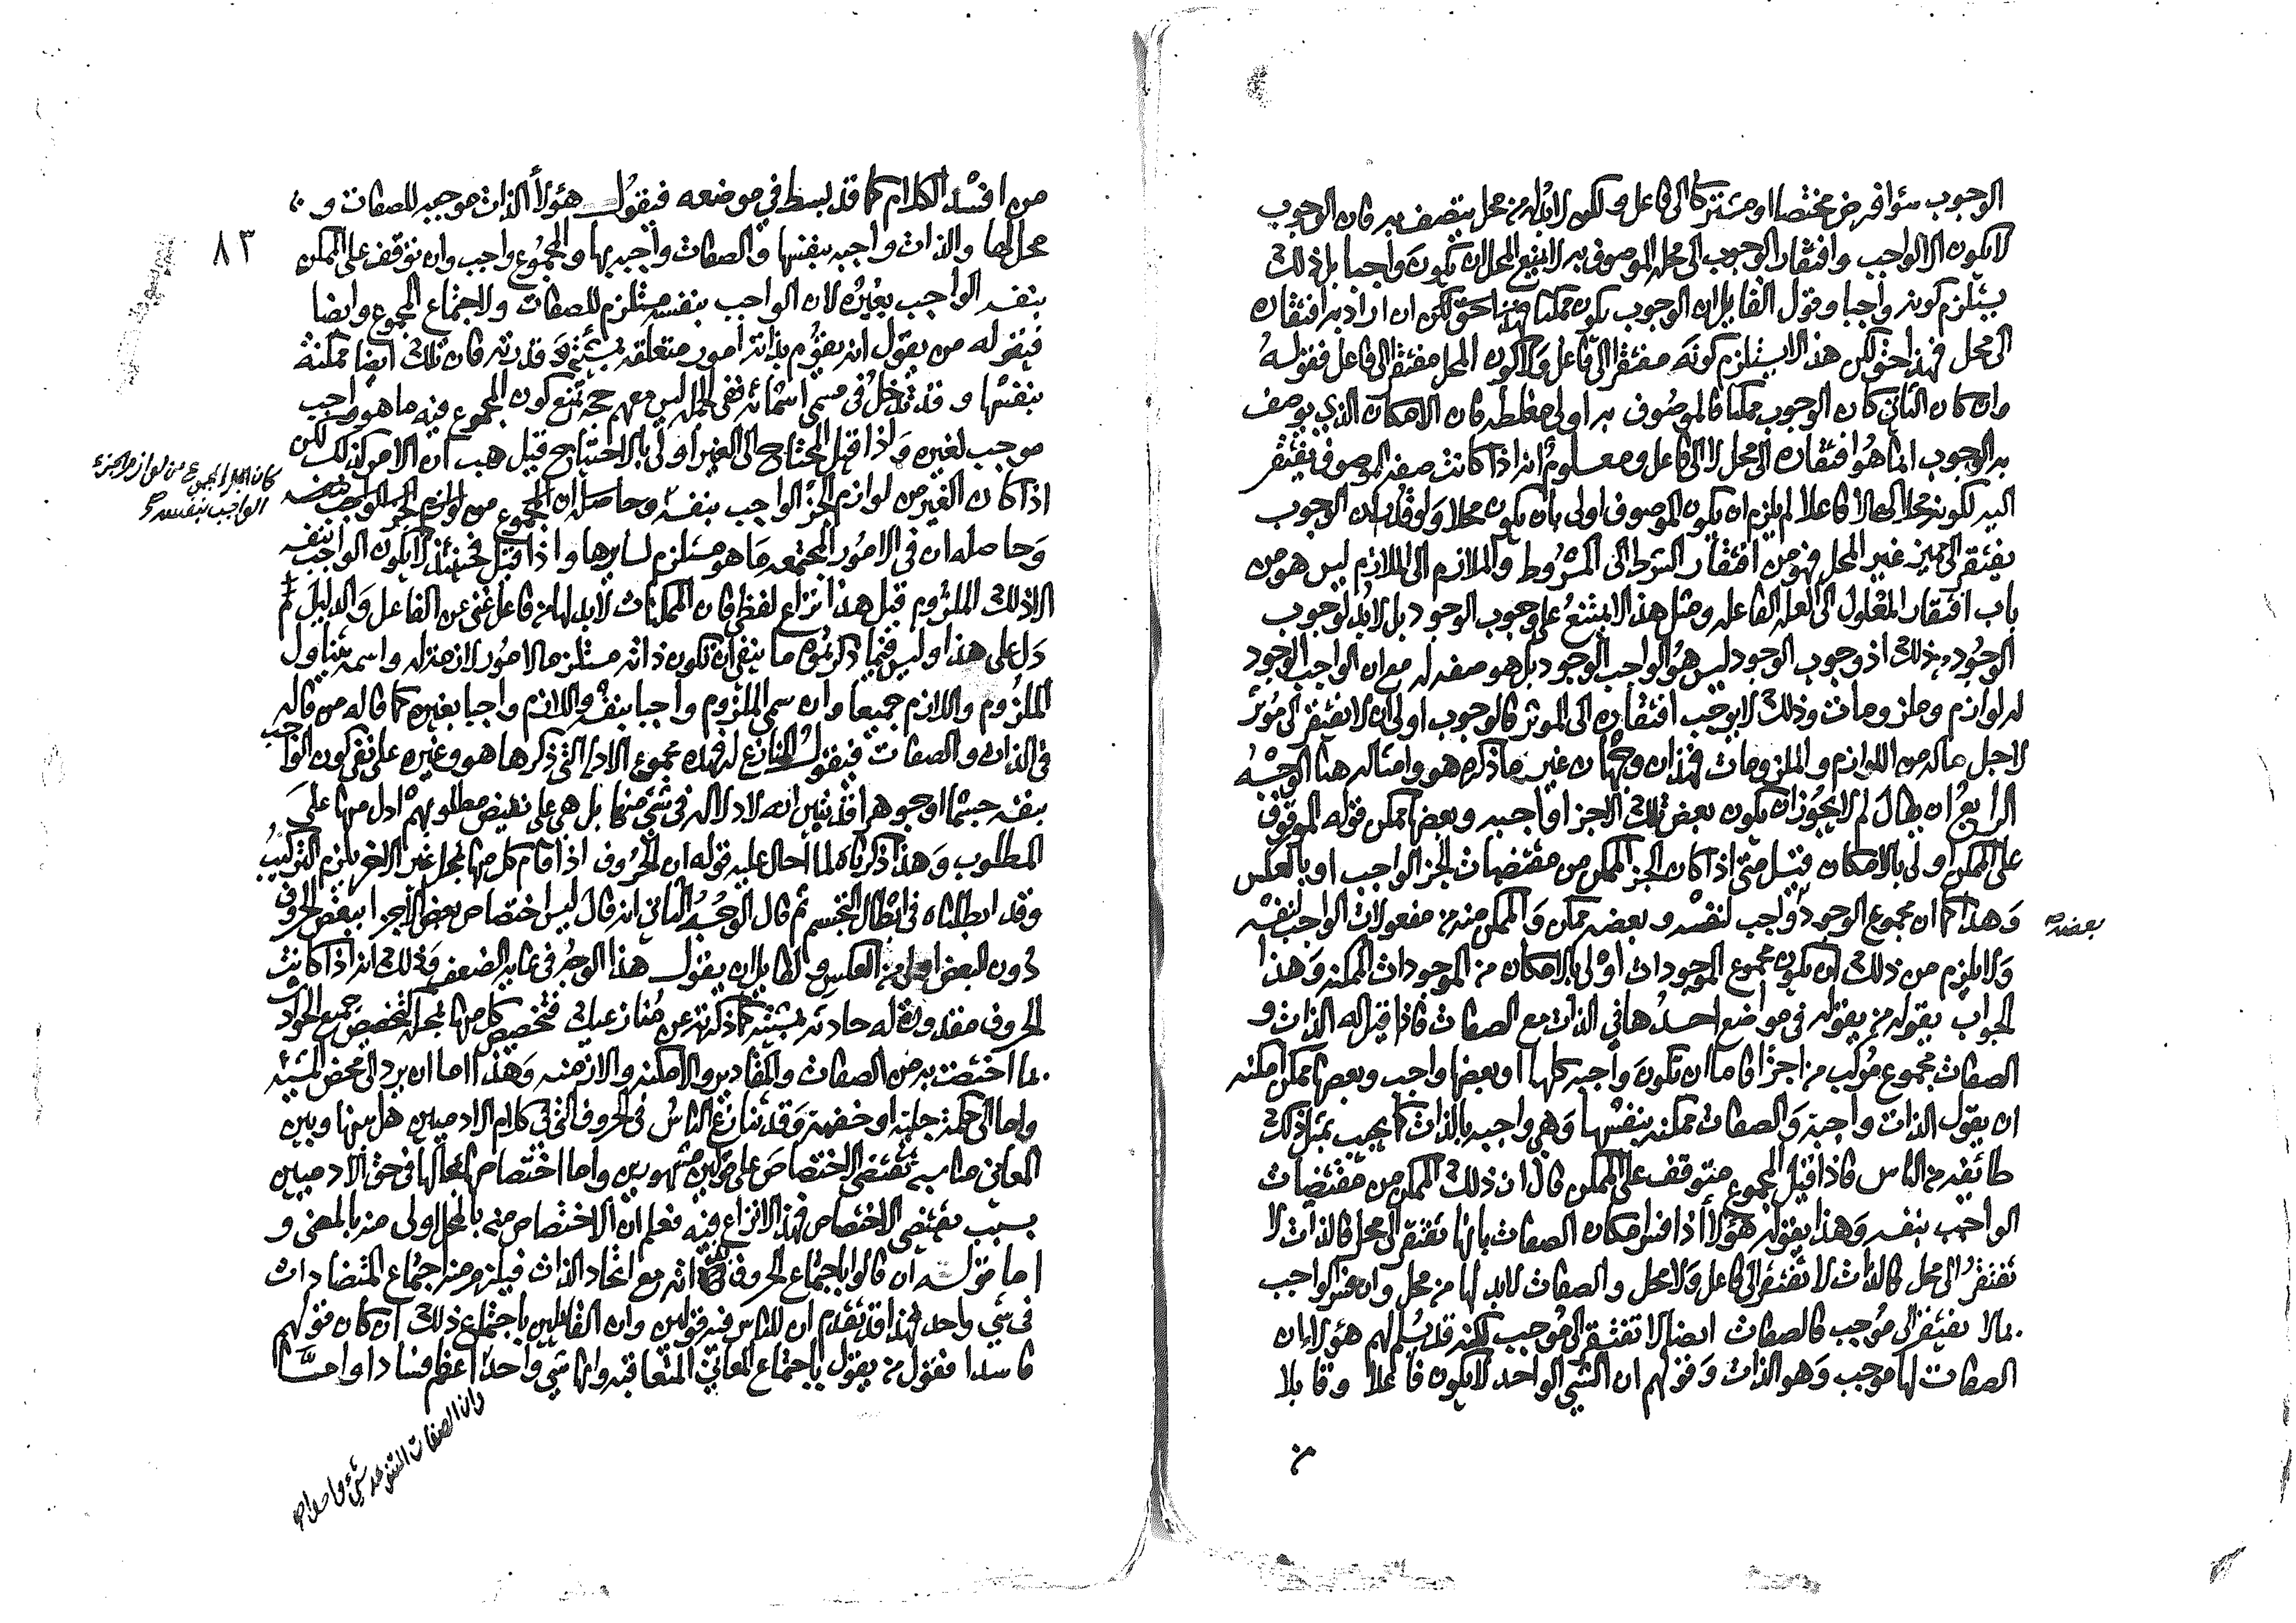 الوجوب سؤا فرض مختصا او مشتركا الى فاعل ولكن لابد له من محل يتصف به فان الوجوب
لا يكون الا لواجب وافتقار الوجوب الى محله الموصوف به لا يمنع المحل ان يكون واجبا بل ذلك
يستلزم كونه واجبا وقول القايل ان الوجوب يكون ممكنا حق لكن ان اراد به افتقاره
الى محل فهذا حق لكن هذا لا يستلزم كونه مفتقرا الى فاعل ولا كون المحل مفتقرا الى فاعل فقوله
وان كان الثاني كان الوجوب ممكنا فالموصوف به اولى مغلطه فان الامكان الذي يوصف
به الوجوب انما هو افتقاره الى محل لا الى فاعل ومعلوم انه اذا كانت صفه الموصوف تفتقر
اليه لكونه محلا لها لا فاعلا لم يلزم ان يكون الموصوف اولى بان يكون محلا ولو قدر ان الوجوب
يفتقر الى غير المحل فهو من افتقار الشرط الى المشروط والملازم الى الملازم ليس هو من
باب افتقار المعلول الى العله الفاعله ومثل هذا لا يمتنع على وجوب الوجود بل لابد لوجوب
الوجود من ذلك اذ وجوب الوجود ليس هو الواجب الوجود بل هو صفه له مع ان الواجب الوجود
له لوازم وملزومات وذلك لا يوجب افتقاره الى الموثر فالوجوب اولى ان لا يفتقر الى موثر
لاجل ماله من اللوازم والملزومات فهذان وجهان غير ما ذكره هو وامثاله هنا الوجه
الرابع ان يقال لم لا يجوز ان يكون بعض تلك الاجزا واجبه وبعضها ممكن قوله الموقوف
على الممكن اولى بالامكان قيل متى اذا كان الجز الممكن من مقتضيات الجز الواجب او بالعكس
وهذا كما ان مجموع الوجود واجب لنفسه وبعضه ممكن والممكن منه من مفعولات الواجب لنفسه
بعضه
ولا يلزم من ذلك ان يكون مجموع الموجودات اولى بالامكان من الموجودات الممكنه وهذا
الجواب يقوله من يقوله في مواضع احدها في الذات مع الصفات فاذا قيل له الذات و
الصفات مجموع مركب من اجزا فاما ان تكون واجبه كلها او بعضها واجب وبعضها ممكن امكنه
ان يقول الذات واجبة والصفات ممكنه بنفسها وهي واجبه بالذات كما يجيب بمثل ذلك
طائفه من الناس فاذا قيل المجموع متوقف على الممكن قال ان ذلك الممكن من مقتضيات
الواجب بنفسه وهذا يقوله هؤلا اذا فسر امكان الصفات بانها تفتقر الى محل فالذات لا
تفتقر الى محل فالذات لا تفتقر الى فاعل ولا محل والصفات لابد لها من محل وان فسر الواجب
بما لا يفتقر الى موجب فالصفات ايضا لا تفتقر الى موجب لكنه قد يسلم لهم هؤلا ان
الصفات لها موجب وهو الذات وقولهم ان الشي الواحد لا يكون فاعلا وقابلا
من
من افسد الكلام كما قد بسط في موضعه فيقول هؤلا الذات موجبه للصفات و
محل لها والذات واجبه بنفسها والصفات واجبه بها والمجموع واجب وان توقف على الممكن
٨٣
بنفسه الواجب بغيره لان الواجب بنفسه مستلزم للصفات ولاجتماع المجموع وايضا
فيقوله من يقول انه يقوم بذاته امور متعلقه بمشيئته وقدرته فان تلك ايضا ممكنة
بنفسها وقد تدخل في مسمى اسمائه ففي الجمله ليس معهم حجه تمنع كون المجموع فيه ما هو واجب
موجب لغيره واذا قيل المحتاج الى الغير اولى بالاحتياج قيل هب ان الامر كذلك لكن
اذا كان الغير من لوازم الجز الواجب بنفسه وحاصله ان المجموع من لوازم الجز الواجب بنفسه
كان المجموع من لوازم الجزء
الواجب بنفسه
وحاصله ان في الامور المجتمعه ما هو مستلزم لسايرها واذا قيل فحينئذ لا يكون الواجب بنفسه
الا ذلك الملزوم قيل هذا نزاع لفظي فان الممكنات لابد لها من فاعل غني عن الفاعل والدليل
دل على هذا وليس فيما ذكرتموه ما ينفي ان تكون ذاته مستلزمه لامور لازمة له واسمه يتناول
الملزوم واللازم جميعا وان سمى الملزوم واجبا بنفسه واللازم واجبا بغيره كما قاله من قاله
في الذات والصفات فيقول المنازع له فهذه مجموع الادله التي ذكرها هو وغيره على نفي كون الواجب
بنفسه جسما او جوهرا قد تبين انه لا دلاله في شي منها بل هي على نقيض مطلوبهم ادل منها على
المطلوب وهذا ذكرناه لما احال عليه قوله ان الحروف اذا قام كل منها بمحل غير الاخر يلزم التركيب
وقد ابطلناه في ابطال التجسم ثم قال الوجه الثاني انه قال ليس اختصاص بعض الاجزا ببعض الحروف
دون البعض اولى من العكس ولقايل ان يقول هذا الوجه في غايه الضعف وذلك انه اذا كانت
الحروف مقدورة له حادثه بمشيئته كما ذكرته عن منازعيك فتخصيص كل منها بمحله كتخصيص جميع الحوادث
بما اختصت به من الصفات والمقادير والامكنه والازمنه وهذا اما ان يرد الى محض المشيئه
واما الى حكمة جلية او خفية وقد تنازع الناس في الحروف التي في كلام الادميين هل بينها وبين
المعاني مناسبه تقتضي الاختصاص على قولين مشهورين واما اختصاصها بمحالها في حق الادميين
بسبب يقتضي الاختصاص فهذا لا نزاع فيه فعلم ان الاختصاص منه بالمحل اولى منه بالمعنى و
اما قوله ان قالوا باجتماع الحروف في ذاته مع اتحاد الذات فيلزم منه اجتماع المتضادات
في شي واحد فهذا قد تقدم ان للناس فيه قولين وان القائلين باجتماع ذلك ان كان قولهم
فاسدا فقول من يقول باجتماع المعاني المتعاقبة وانها شي واحد اعظم فسادا
وان الصفات المتنوعه شيء واحد